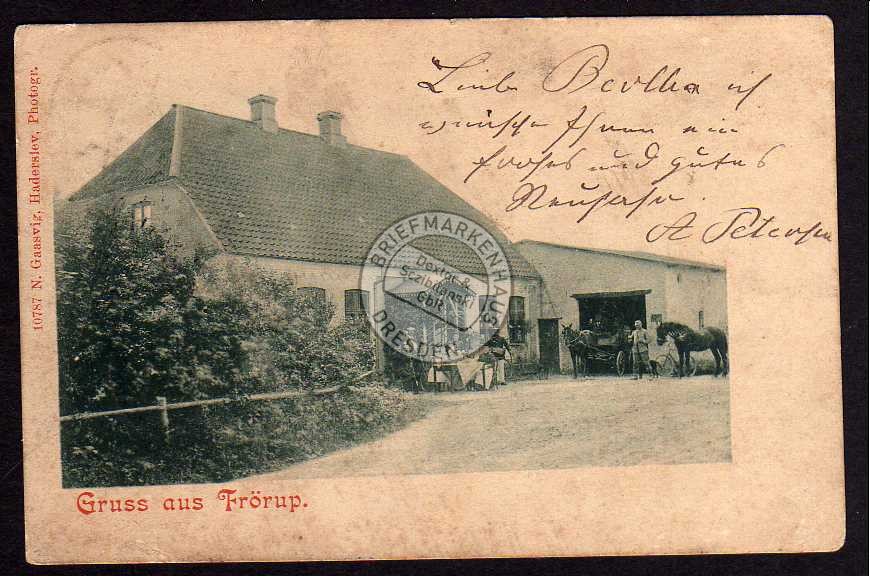 10787 N. Gaasvig, Haderslev, Photogr.
Liebe Bertha ich
wünsche Ihnen ein
frohes und gutes
Neujahr.
A Petersen
BRIEFMARKENHAUS
Dexter &
Gbr.
DRESDEN
Gruss aus Frörup.